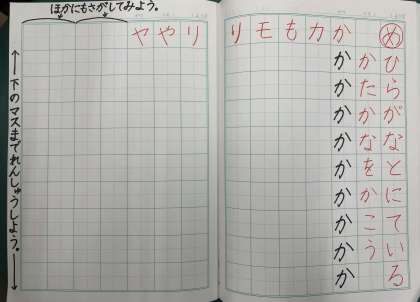 めひらがなとにている
かたかなをかこう
かかかかかかかかかか
カ
も
モ
り
リ
や
ヤ
ほかにもさがしてみよう。
下のマスまでれんしゅうしよう。